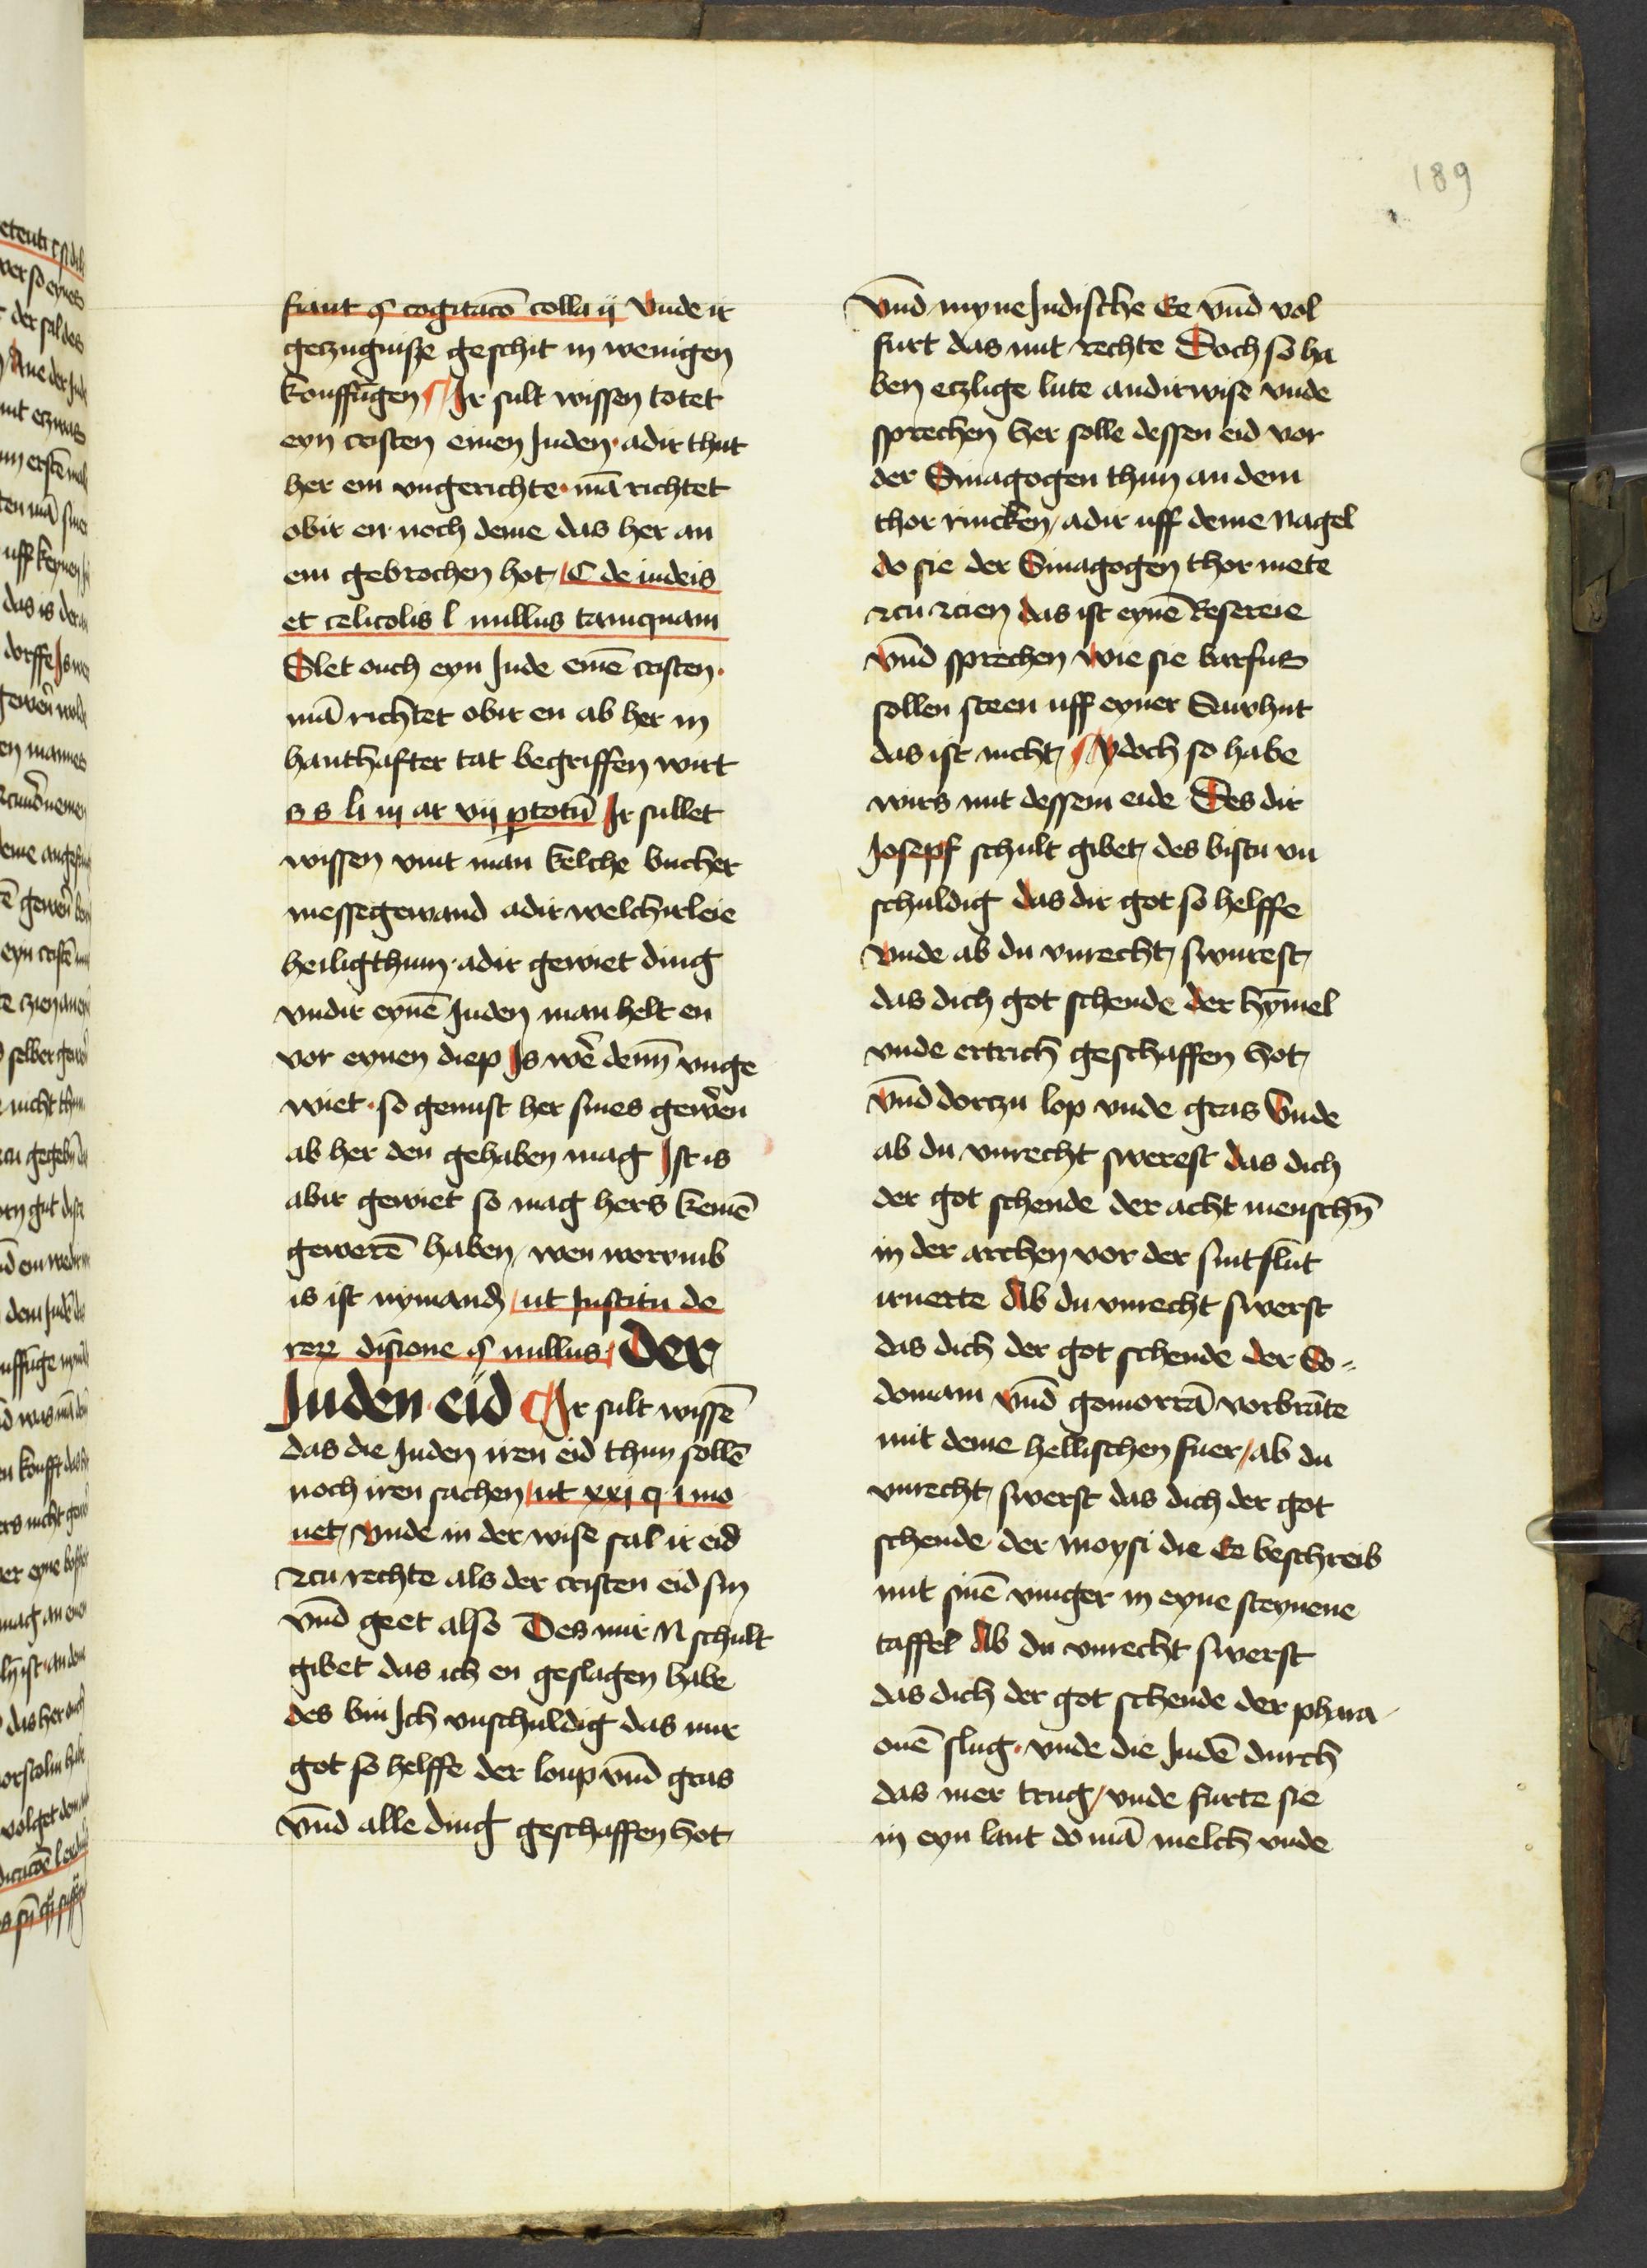 189
fiant § cogitacō colla ij Vnde ir
getzugnisze geschit in wenigen
kouffūgen Ir sult wissen totet
eyn cristen einen Juden adir thut
her em vngerichte mā richtet
obir en noch deme das her an
em gebrochen hot C de iudeis
et celicolis l nullus tamquam
Slet ouch eyn Jude einē cristen
mā richtet obir en ab her in
hanthafter tat begriffen wirt
s s li iij ar vij p totū Ir sullet
wissen vint man kelche bucher
messegewand adir welchirleie
heiligthum adir gewiet ding
vndir eynē Juden man helt en
vor eynen diep Is wē denn vnge
wiet so genust her sines gewern
ab her den gehaben mag Ist is
abir gewiet so mag hers keinē
gewerē haben wen worvmb
is ist nymands ut Institu de
rerz diuisione § nullus Der
Juden eid Ir sult wissē
das die Juden iren eid thun sollē
noch iren sachen ut xxij q i mo
uet Vnde in der wise sal ir eid
zcu rechte als der cristen eid sin
vnd geet also Des mir N schult
gibet das ich en geslagen habe
des bin Ich vnschuldig das mir
got so helffe der loup vnd gras
vnd alle ding geschaffen hot
vnd myne Judische Ee vnd vol
furt das mit rechte Doch so ha
ben etzlige lute andirwise vnde
sprechen her solle dessen eid vor
der Sinagogen thun an dem
thor rincken adir uff deme Nagel
do sie der Sinagogen thor mete
zcu zcien das ist eynē Besereie
vnd sprechen wie sie barfus
sollen steen uff eyner Suwhut
das ist nicht ydoch so habe
wirs mit dessem eide Des dir
Josepf schult gibet des bistu vn
schuldig das dir got so helffe
vnde ab du vnrecht swurest
das dich got schende der hȳmel
vnde ertrich geschaffen hot
vnd dorczu lop vnde gras Vnde
ab du vnrecht swerest das dich
der got schende der acht menschn
in der archen vor der sintflut
irnerte Ab du vnrecht swerst
das dich der got schende der So-
domam vnd gomorrā vorbrāte
mit deme hellischen fuer ab du
vnrecht swerst das dich der got
schende der moysi die Ee beschreib
mit sinē vinger in eyne steynene
taffel Ab du vnrecht swerst
das dich der got schende der phara
onē slug vnde die Judē durch
das mer trug vnde furte sie
in eyn lant do mā melch vnde